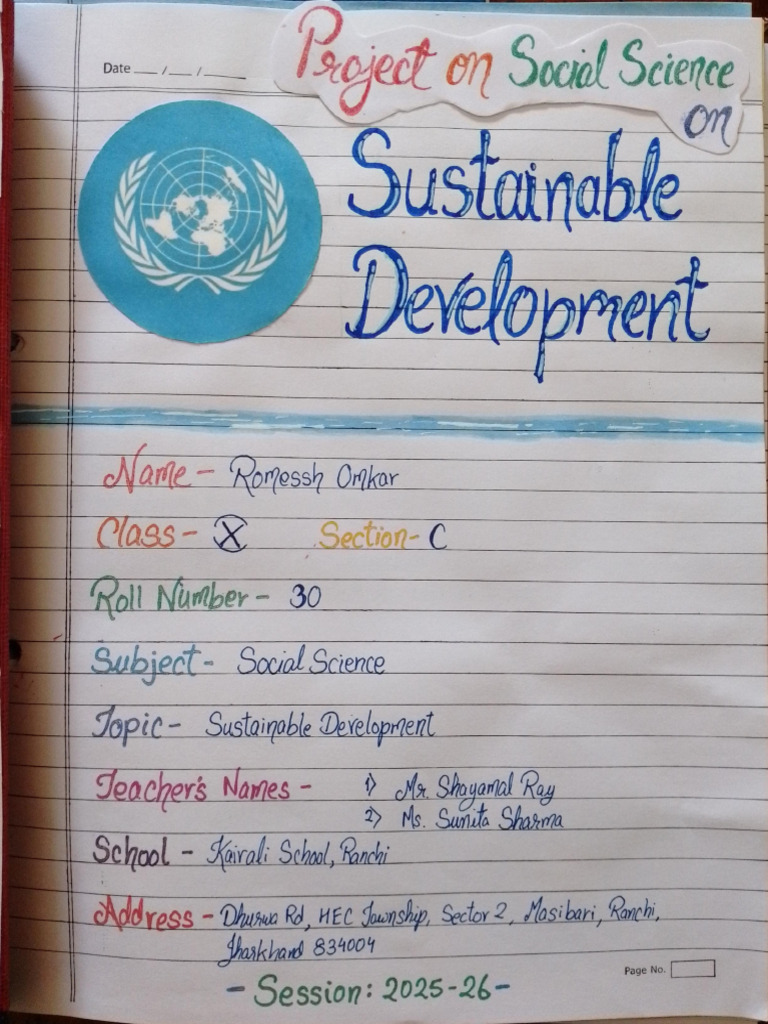 Date __ / __ / ____
Project on Social Science
on
Sustainable
Development
Name - Romessh Omkar
Class - X Section - C
Roll Number - 30
Subject - Social Science
Topic - Sustainable Development
Teacher's Names - 1) Mr. Shayamal Ray
2) Ms. Sunita Sharma
School - Kairali School, Ranchi
Address - Dhurwa Rd, HEC Township, Sector 2, Mosibari, Ranchi,
Jharkhand 834004
Page No.
- Session: 2025-26 -